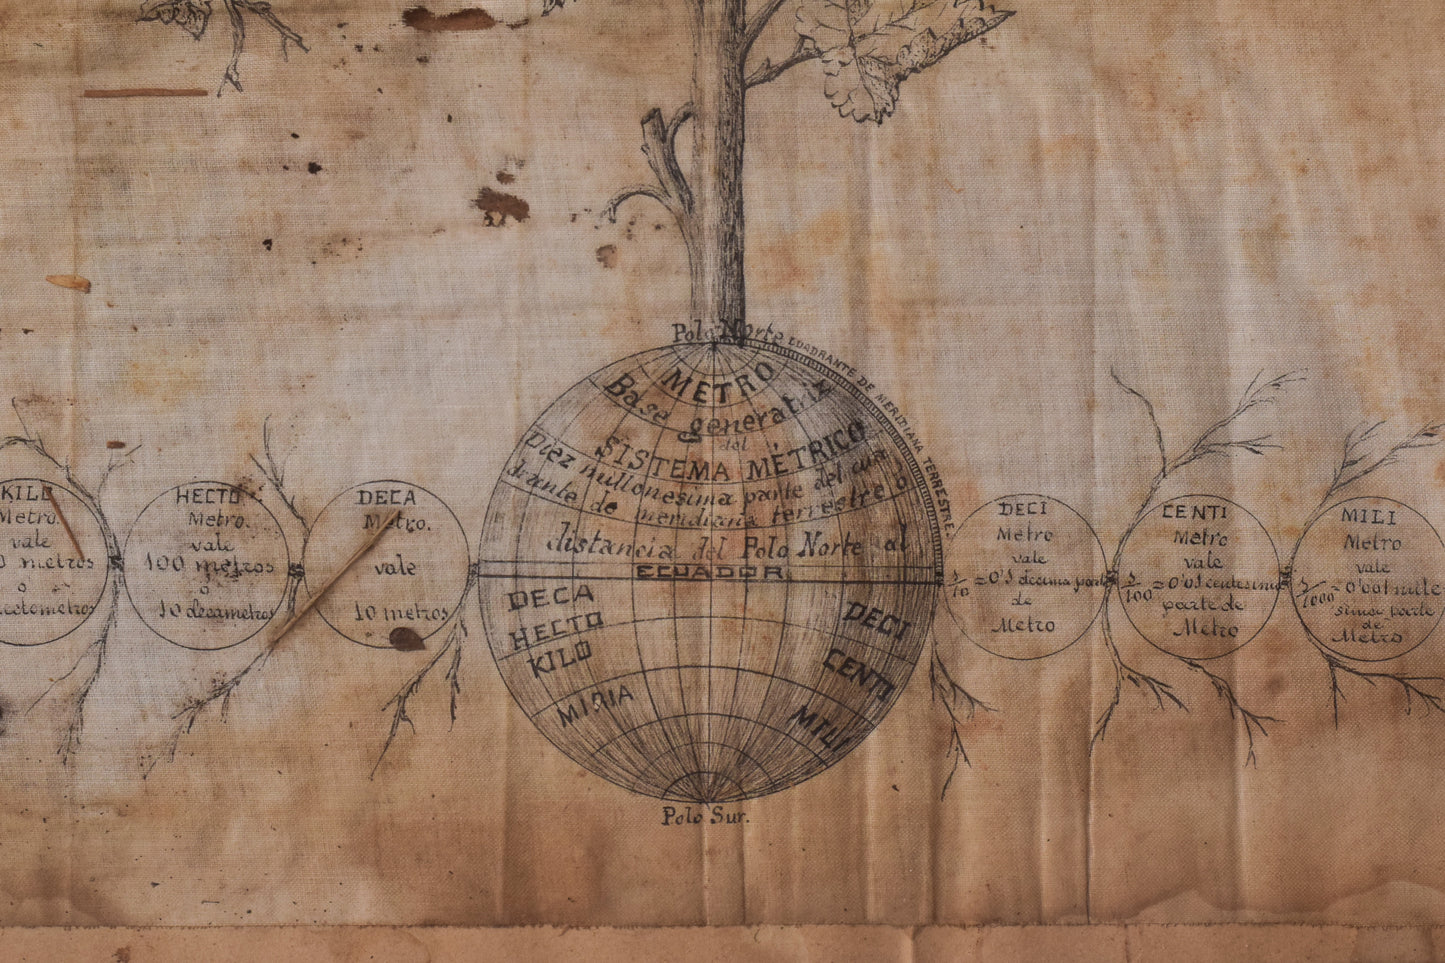 Polo Norte
CUADRANTE DE MERIDIANA TERRESTRE.
METRO
Base generatriz
del
SISTEMA MÉTRICO
Diez millonesima parte del cua
drante de meridiana terrestre o
distancia del Polo Norte al
ECUADOR
DECA
HECTO
KILO
MIRIA
DECI
CENTI
MILI
Polo Sur.
KILO
Metro.
vale
metros
o
HECTO
Metro.
vale
100 metros
o
10 decametros
DECA
Metro.
vale
10 metros
DECI
Metro
vale
1/10 = 0'1 decima parte
de
Metro
CENTI
Metro
vale
1/100 = 0'01 centesima
parte de
Metro
MILI
Metro
vale
1/1000 = 0'001 mile
sima parte
de
Metro